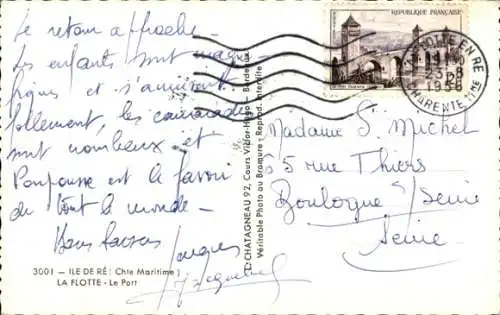 Le retour approche -
Les enfants sont magni
fiques et s'amusent
follement, les camarades
sont nombreux et
Pompousse est le favori
de tout le monde -
Bons baisers
Jacques
Jacqueline
3001 — ILE DE RÉ (Chte Maritime)
LA FLOTTE - Le Port
CHATAGNEAU 92, Cours Victor-Hugo - Bordeaux
Véritable Photo au Bromure - Reprod. interdite
REPUBLIQUE FRANÇAISE
LA FLOTTE EN RÉ
13-8
1956
CHARENTE MME
Madame S. Michel
55 rue Thiers
Boulogne s/Seine
Seine